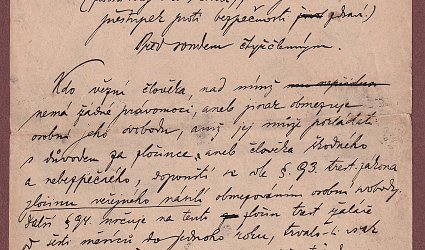 přestupek proti bezpečnosti zdraví.)
Před soudem čtyřčlenným.
Kdo vězní člověka, nad nímž
nemá žádné právomoci, aneb jinak obmezuje
osobní jeho svobodu, aniž jej může pokládati
s důvodem za zločince, aneb člověka škodného
a nebezpečného, dopouští se dle §. 93. trest. zákona
zločinu veřejného násilí obmezováním osobní svobody.
Další §94. na tento zločin trest žaláře
do jednoho roku, trvalo-li však